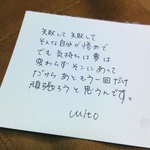 失敗して 失敗して
そんな自分が惨めで
でも 気持ちは 夢は
変わらず そこにあって
だから あともう一回だけ
頑張ろうと 思うんです。
mito